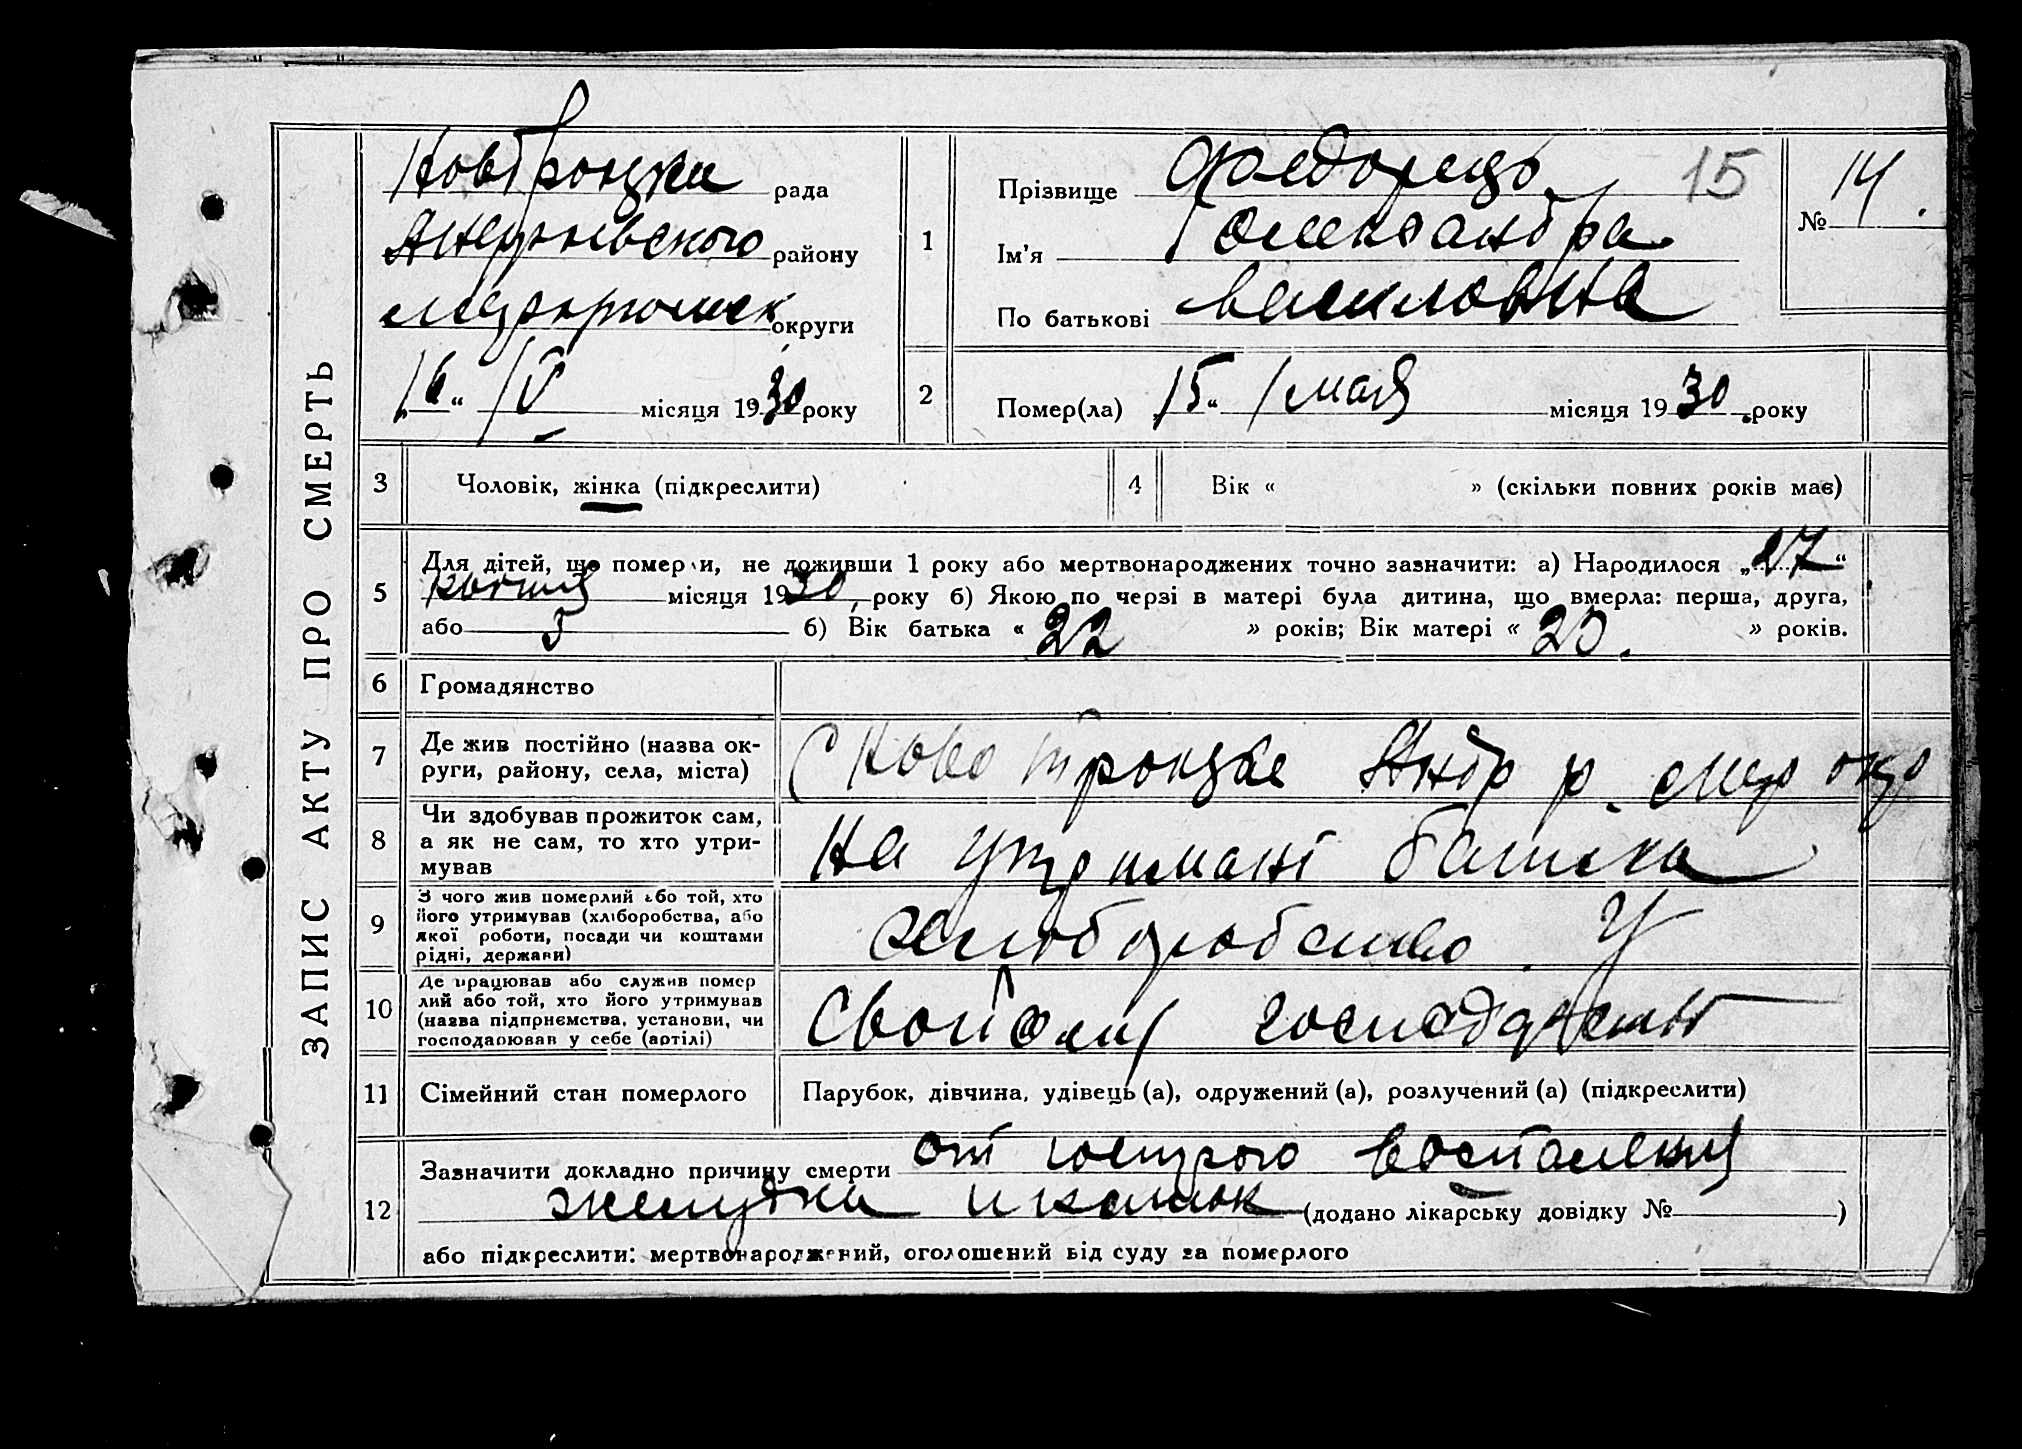 ЗАПИС АКТУ ПРО СМЕРТЬ
Новтроцка рада
району
округи
„16“ IV місяця 1930 року
1
Прізвище Федорець
Ім'я Олександра
По батькові Василовна
15
№ 14.
2
Помер(ла) „15“ мая місяця 1930 року
3 Чоловік, жінка (підкреслити)
4 Вік « » (скільки повних років має)
5
Для дітей, що померли, не доживши 1 року або мертвонароджених точно зазначити: а) Народилося „27“
місяця 1930 року б) Якою по черзі в матері була дитина, що вмерла: перша, друга,
або 5 б) Вік батька « 22 » років; Вік матері « 20 » років.
6 Громадянство
7 Де жив постійно (назва ок-
руги, району, села, міста)
С Ново Троцке Андр р.
8 Чи здобував прожиток сам,
а як не сам, то хто утри-
мував
На утримані батька
9 З чого жив померлий або той, хто
його утримував (хліборобства, або
якої роботи, посади чи коштами
рідні, держави)
хлиборобство У
10 Де працював або служив помер
лий або той, хто його утримував
(назва підприємства, установи, чи
господарював у себе (артілі)
Свойому господарстві
11 Сімейний стан померлого
Парубок, дівчина, удівець (а), одружений (а), розлучений (а) (підкреслити)
12
Зазначити докладно причину смерти от воспаления
желудка и кишок (додано лікарську довідку № )
або підкреслити: мертвонароджений, оголошений від суду за померлого